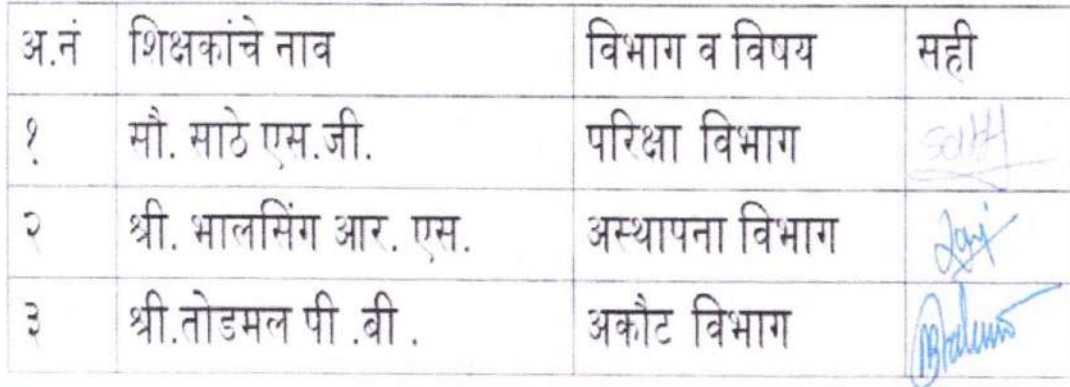 अ.नं शिक्षकांचे नाव विभाग व विषय सही
१ सौ. साठे एस.जी. परिक्षा विभाग
२ श्री. भालसिंग आर. एस. अस्थापना विभाग
३ श्री.तोडमल पी .बी . अकौट विभाग